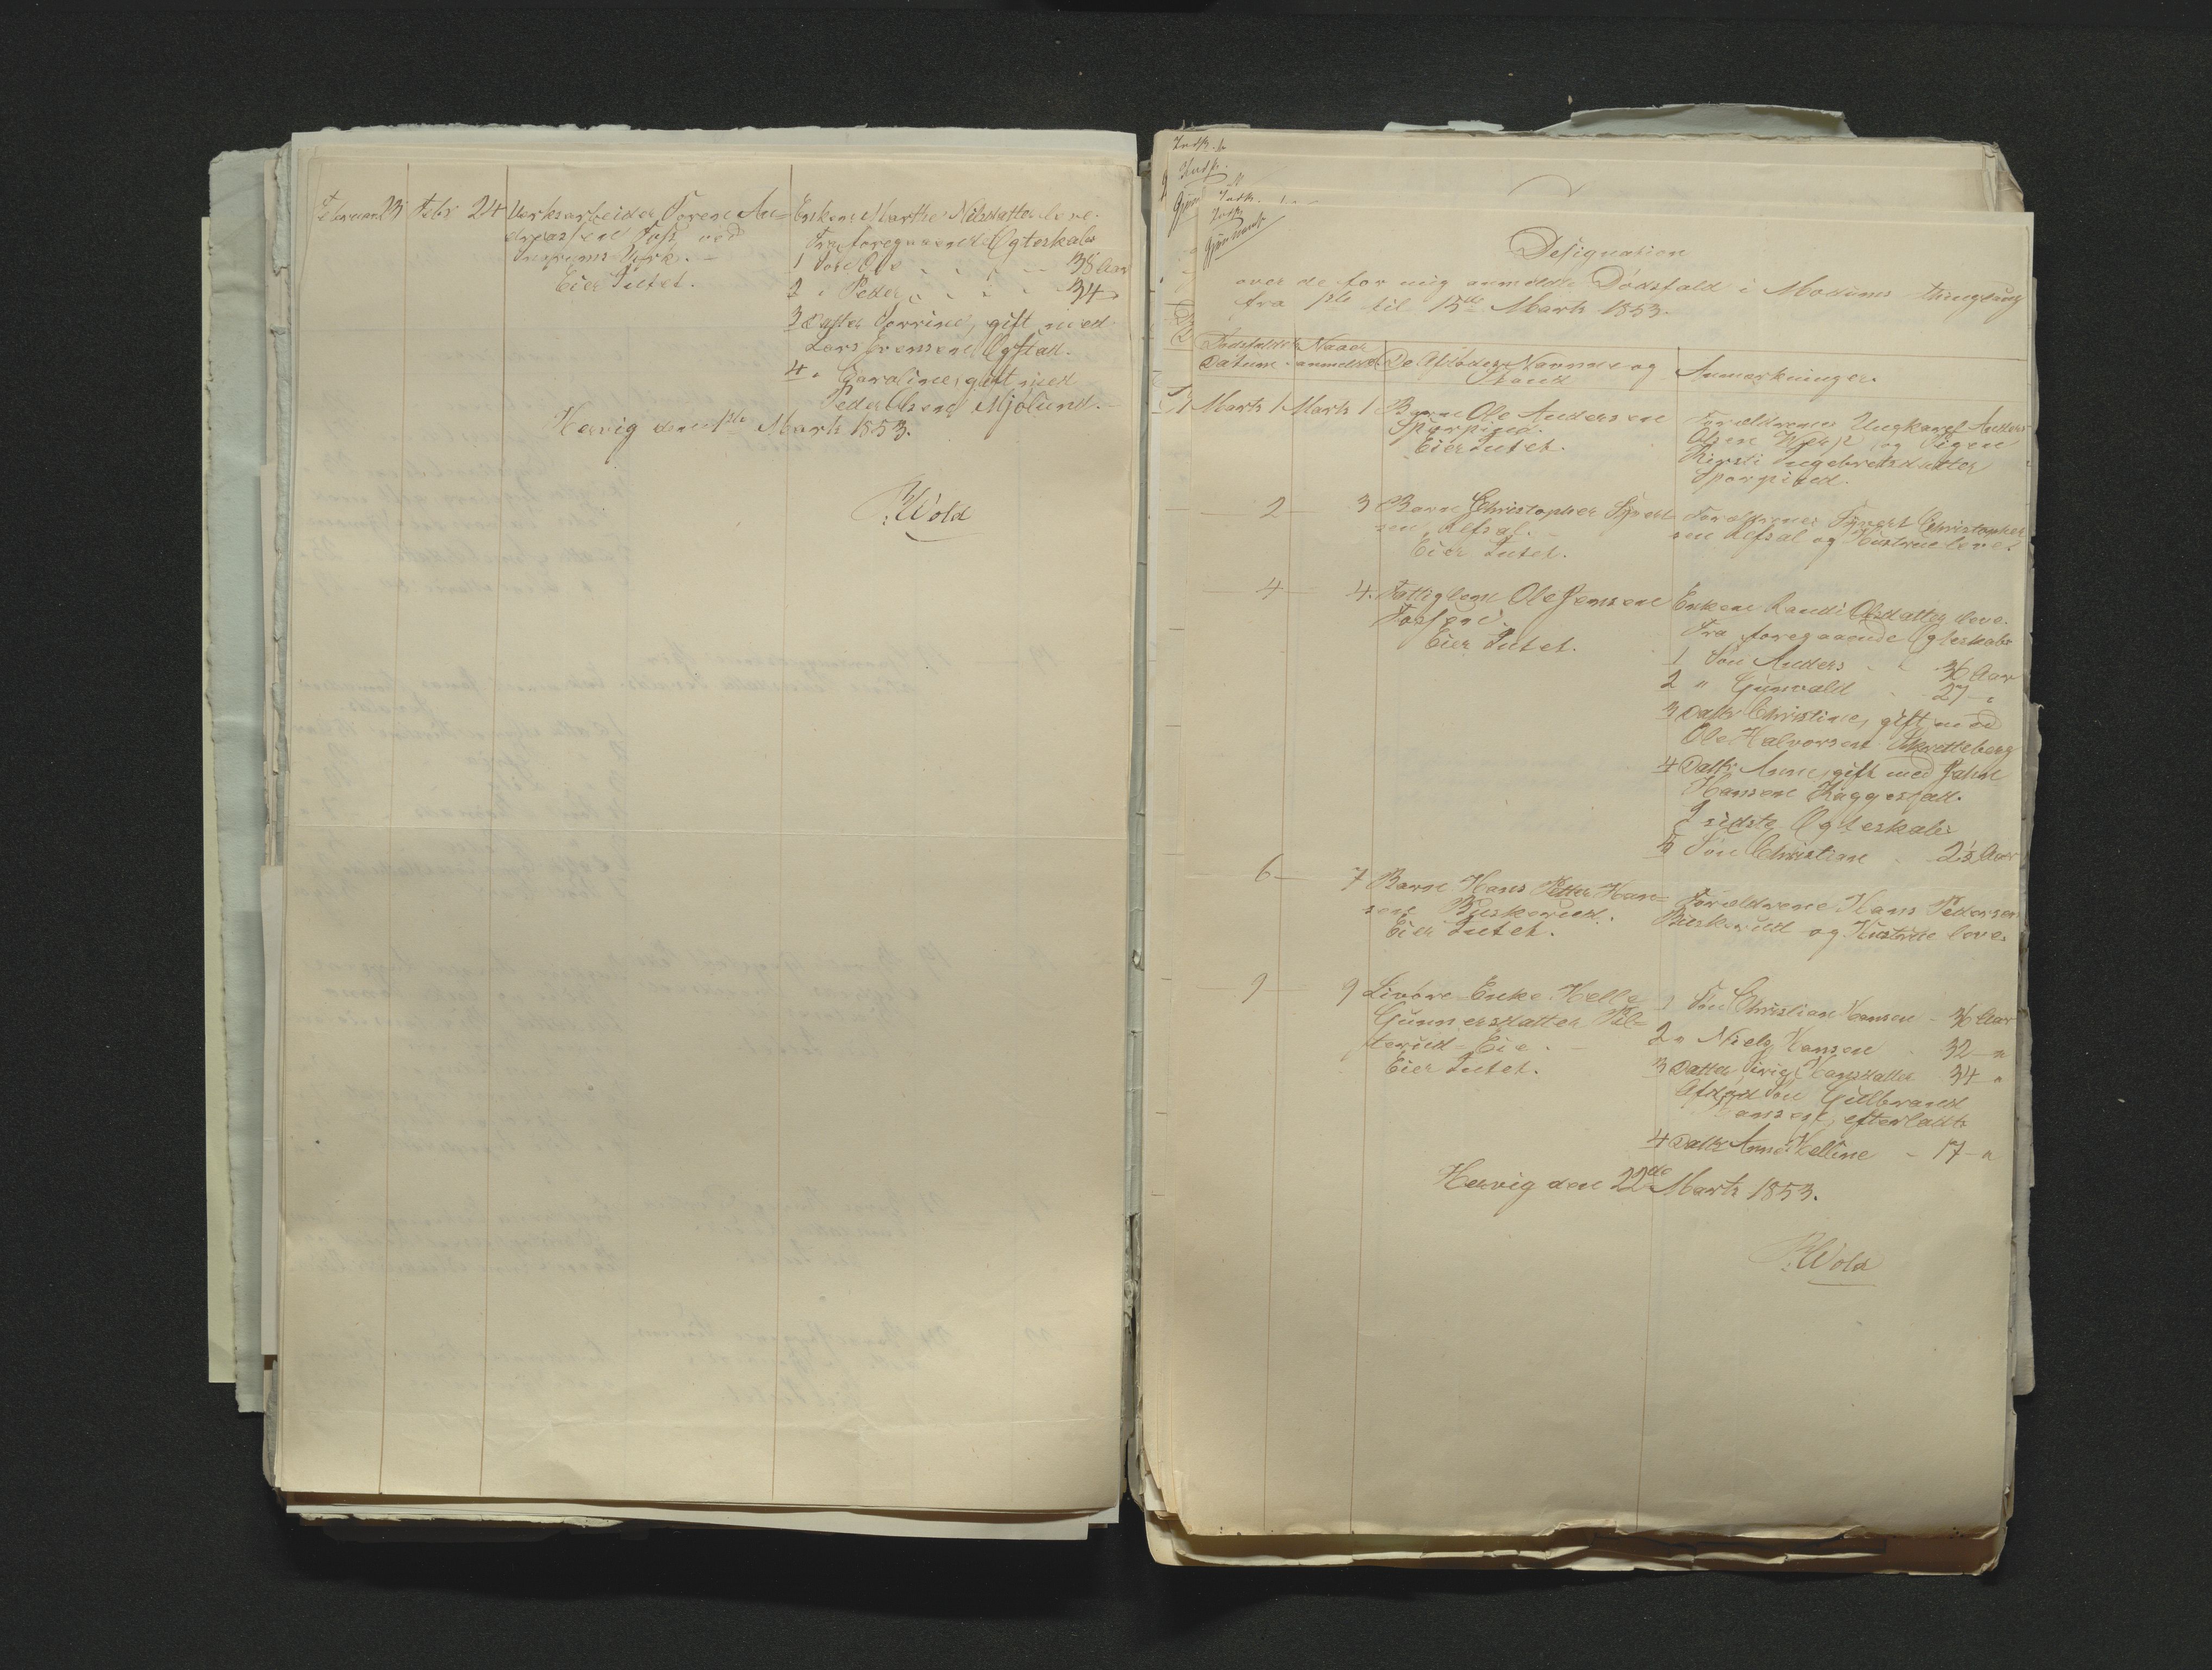 Februar 23 Febr 24 Verksarbeider Soren An=
dreassen Foss ved
Værk. –
Eier Intet.
Enken Marthe Nilsdatter leve.
Fra foregaaende Egteskab
1 Søn Ole 38 Aar
2 " Peder 34 "
3 Datter Sorrine, gift med
Lars Evensen
4 " Caroline, gift med
Peder Olsen Mjølund.
Hervig den 1ste Marts 1853.
Wold
Designation
over de for mig anmeldte Dødsfald i Modums Thinglaug
fra 1ste til 15de Marts 1853.
Dødsfaldets Datum
Naar anmeldt
De Afdødes Navne og Stand
Anmærkninger.
Marts 1 Marts 1 Barn Ole Andersen
Sporpind.
Eier Intet.
Forældrene Ungkarl Anders
Olsen og Pigen
Kirsti Ingebretsdatter
Sporpind.
2 3 Barn Christopher Syvert=
sen Aefsal.
Eier Intet.
Forældrene Syvert Christopher=
sen Aefsal og Hustrue leve.
4 4. Fattiglem Ole Jensen
Eier Intet.
Enken Randi Olsdatter leve.
Fra foregaaende Egteskab
1 Søn Anders 36 Aar
2 " Gunvald 27 "
3 Dattr Christine, gift med
Ole Halvorsen Skretteberg
4 Dattr Anne, gift med John
Hansen Kaggestad.
I sidste Egteskab
5 Søn Christian 25 Aar
6 7 Barn Hans Petter Han=
sen Buskerud.
Eier Intet.
Forældrene Hans Pedersen
Buskerud og Hustrue leve.
9 9 Livøre=Enke Helle
Gunnersdatter
=Eie.
Eier Intet.
1 Søn Christian Hansen 36 Aar
2 " Niels Hansen 32 "
3 Datter Siri Hansdatter 34 "
Afdød Søn Gulbrand
Hansens, efterladte
4 Dattr Anne Helline 17 "
Hervig den 22de Marts 1853.
Wold